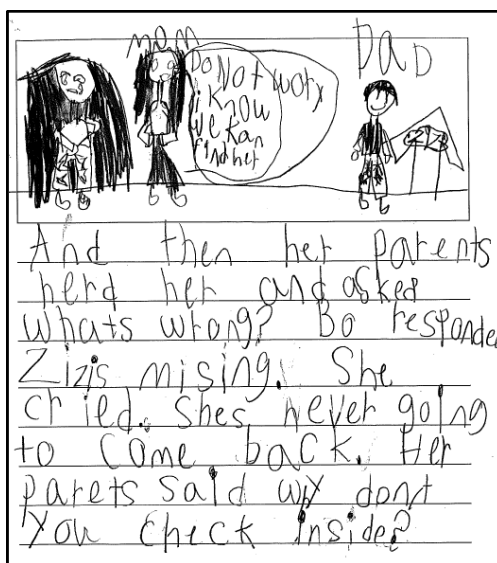 mom
DaD
Do Not wory
i know
we kan
find her
And then her parents
herd her and asked
whats wrong? Bo responded
Zizis mising. She
cried. Shes never going
to come back. Her
parets said wy dont
you check inside?